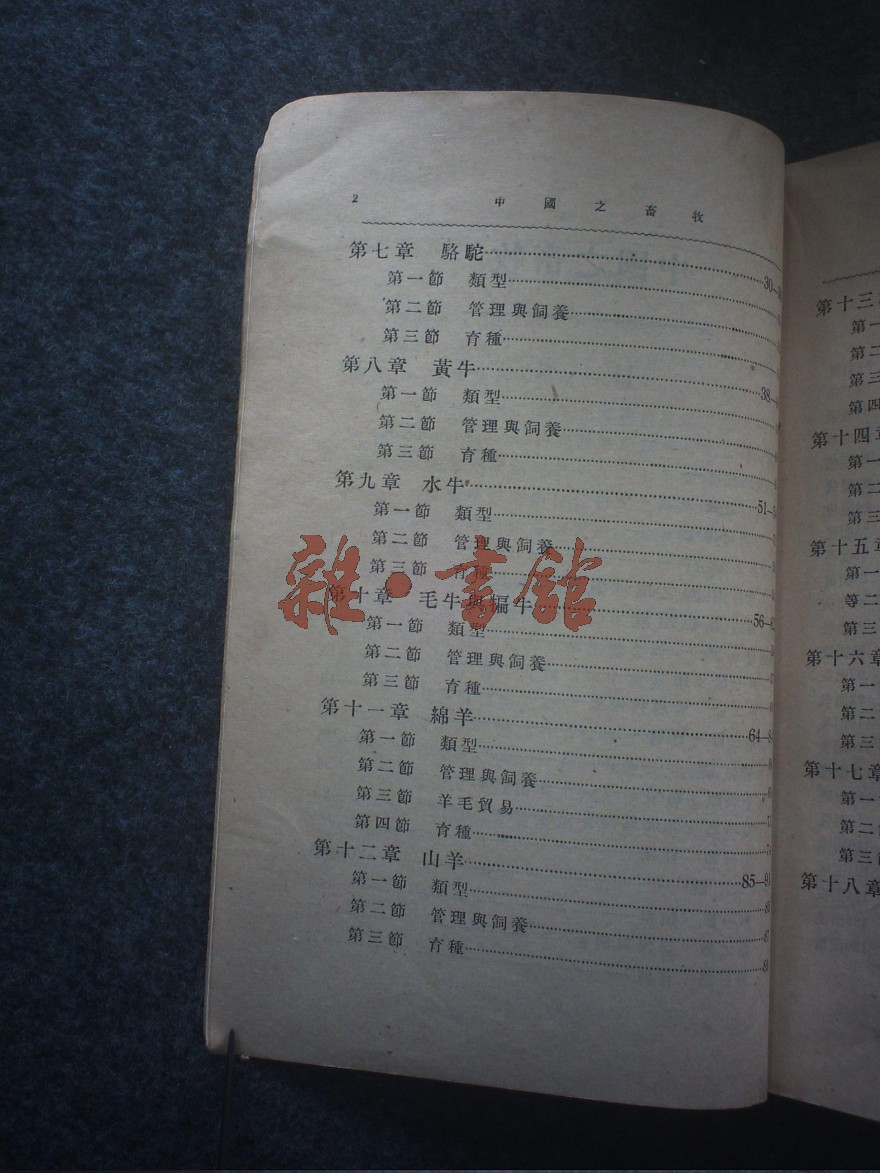 2 中國之畜牧
第七章 駱駝 30—
第一節 類型
第二節 管理與飼養
第三節 育種
第八章 黃牛 38—
第一節 類型
第二節 管理與飼養
第三節 育種
第九章 水牛 51—
第一節 類型
第二節 管理與飼養
第三節 育種
第十章 毛牛與犏牛 56—
第一節 類型
第二節 管理與飼養
第三節 育種
第十一章 綿羊 64—
第一節 類型
第二節 管理與飼養
第三節 羊毛貿易
第四節 育種
第十二章 山羊 85—91
第一節 類型
第二節 管理與飼養 87
第三節 育種
雜·書館
第十三
第一
第二
第三
第四
第十四章
第一
第二
第三
第十五章
第一
等二
第三
第十六章
第一
第二
第三
第十七章
第一
第二
第三節
第十八章